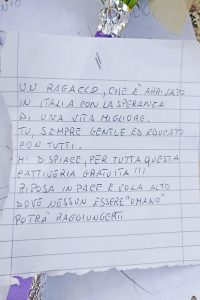 UN RAGAZZO, CHE È ARRIVATO
IN ITALIA CON LA SPERANZA
DI UNA VITA MIGLIORE.
TU, SEMPRE GENTILE ED EDUCATO
CON TUTTI.
MI DISPIACE, PER TUTTA QUESTA
CATTIVERIA GRATUITA!!!
RIPOSA IN PACE E VOLA ALTO
DOVE NESSUN ESSERE "UMANO"
POTRÀ RAGGIUNGERTI